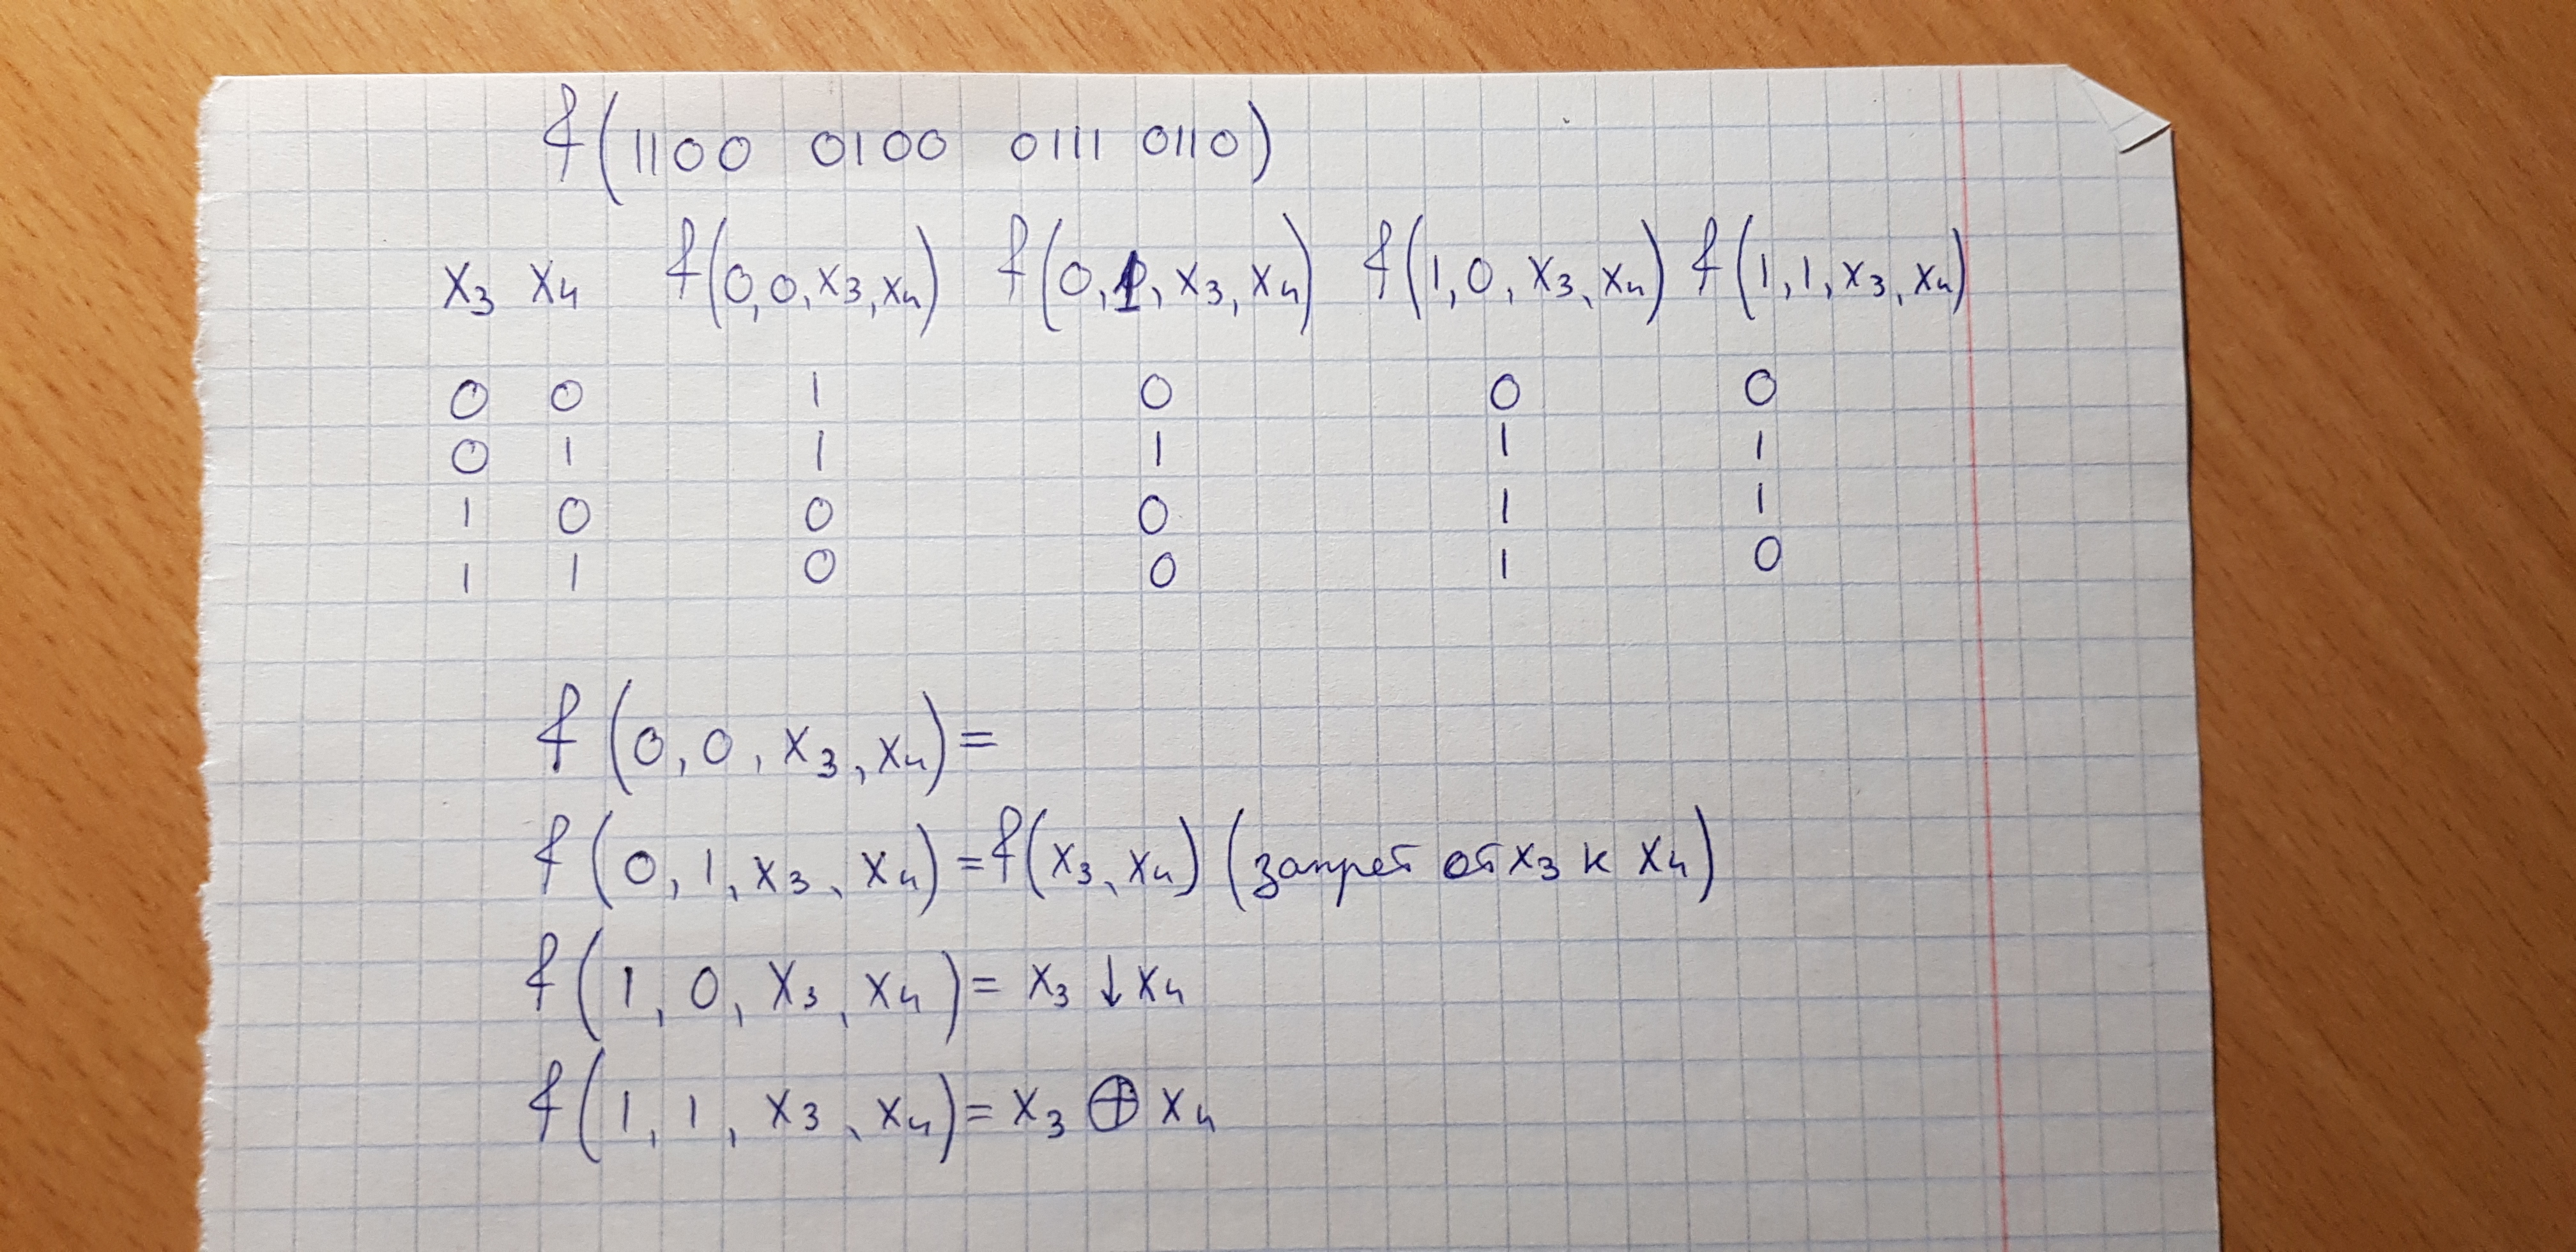 f(1100 0100 0111 0110)
x₃ x₄ f(0,0,x₃,x₄) f(0,1,x₃,x₄) f(1,0,x₃,x₄) f(1,1,x₃,x₄)
0 0 1 0 0 0
0 1 1 1 1 1
1 0 0 0 1 1
1 1 0 0 1 0
f(0,0,x₃,x₄)=
f(0,1,x₃,x₄)=f(x₃,x₄) (запрет от x₃ к x₄)
f(1,0,x₃,x₄)= x₃ ↓ x₄
f(1,1,x₃,x₄)= x₃ ⊕ x₄